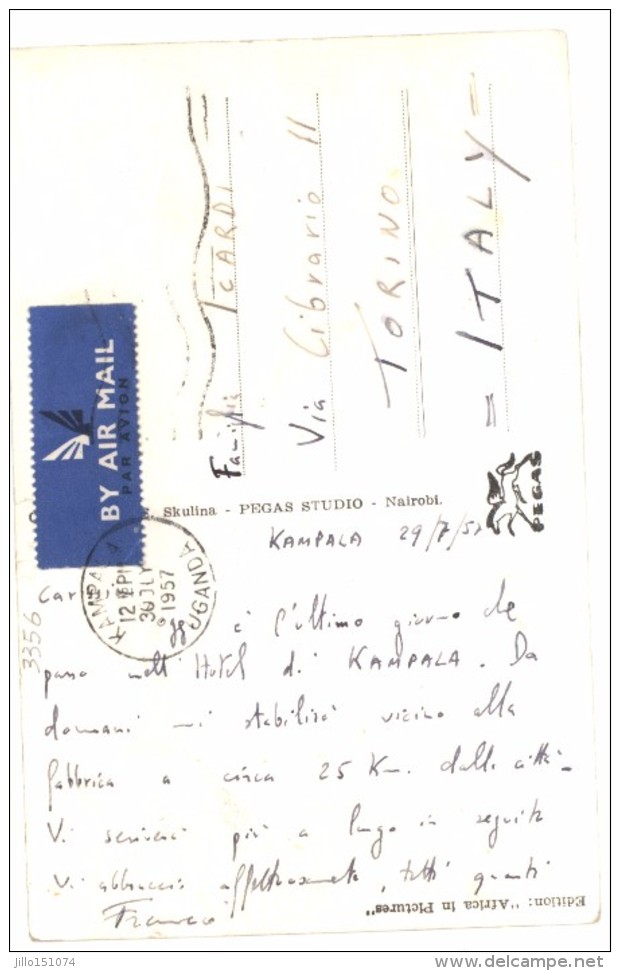 Famiglia ICARDI
Via Cibrario 11
TORINO
= ITALY =
BY AIR MAIL
PAR AVION
Skulina - PEGAS STUDIO - Nairobi.
PEGAS
KAMPALA
12 PM
30 JLY
1957
UGANDA
KAMPALA 29/7/57
Carissimi
oggi è l'ultimo giorno che
passo nell'Hotel di KAMPALA. Da
domani mi stabilirò vicino alla
fabbrica a circa 25 Km. dalla città.
Vi scriverò più a lungo in seguito
Vi abbraccio affettuosamente, tutti quanti
Franco
3356
Edition: "Africa in Pictures"
jillo151074
www.delcampe.net